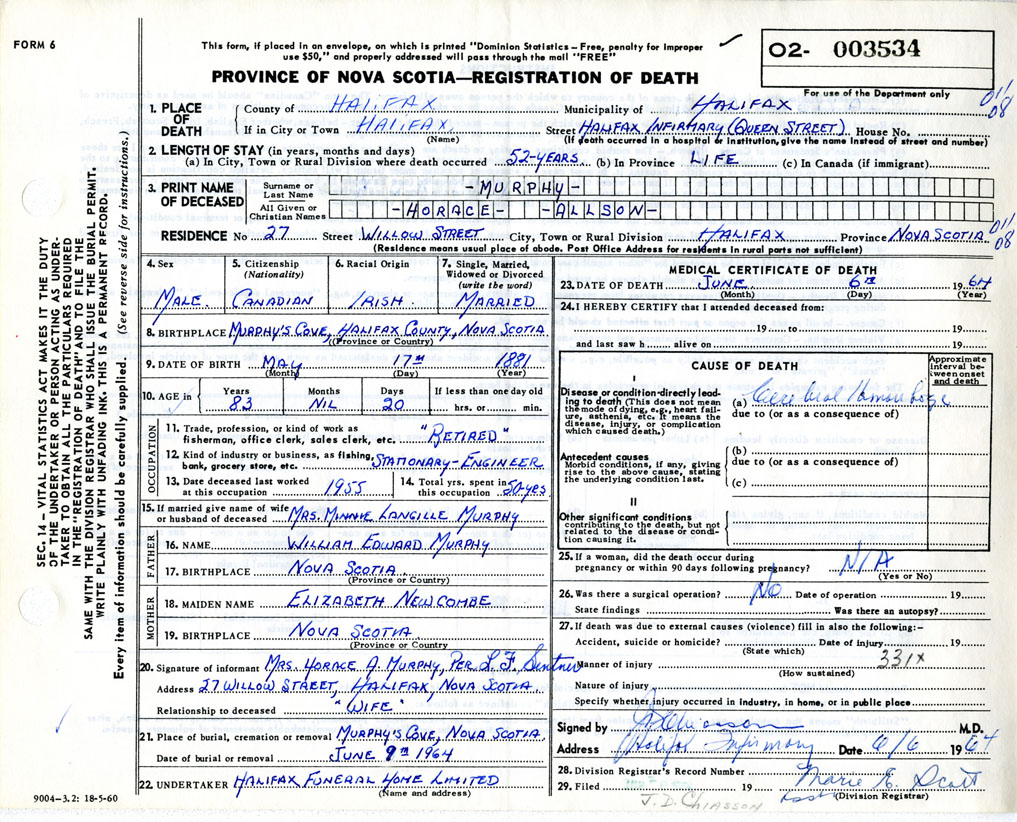 FORM 6
This form, if placed in an envelope, on which is printed "Dominion Statistics – Free, penalty for improper
use $50," and properly addressed will pass through the mail "FREE"
PROVINCE OF NOVA SCOTIA—REGISTRATION OF DEATH
02- 003534
For use of the Department only
011/08
1. PLACE OF DEATH
County of HALIFAX Municipality of HALIFAX
If in City or Town HALIFAX (Name) Street HALIFAX INFIRMARY (QUEEN STREET) House No.
(If death occurred in a hospital or institution, give the name instead of street and number)
2. LENGTH OF STAY (in years, months and days)
(a) In City, Town or Rural Division where death occurred 52-YEARS (b) In Province LIFE (c) In Canada (if immigrant)
3. PRINT NAME OF DECEASED
Surname or Last Name -MURPHY-
All Given or Christian Names -HORACE- -ALLSON-
RESIDENCE No 27 Street WILLOW STREET City, Town or Rural Division HALIFAX Province NOVA SCOTIA
011/08
(Residence means usual place of abode. Post Office Address for residents in rural parts not sufficient)
4. Sex MALE
5. Citizenship (Nationality) CANADIAN
6. Racial Origin IRISH
7. Single, Married, Widowed or Divorced (write the word) MARRIED
8. BIRTHPLACE MURPHY'S COVE, HALIFAX COUNTY, NOVA SCOTIA
(Province or Country)
9. DATE OF BIRTH MAY 17TH 1881
(Month) (Day) (Year)
10. AGE in Years 83 Months NIL Days 20 If less than one day old hrs. or min.
OCCUPATION
11. Trade, profession, or kind of work as fisherman, office clerk, sales clerk, etc. "RETIRED"
12. Kind of industry or business, as fishing, bank, grocery store, etc. STATIONARY-ENGINEER
13. Date deceased last worked at this occupation 1955
14. Total yrs. spent in this occupation 50-yrs
15. If married give name of wife or husband of deceased MRS. MINNIE LANGILLE MURPHY
FATHER
16. NAME WILLIAM EDWARD MURPHY
17. BIRTHPLACE NOVA SCOTIA
(Province or Country)
MOTHER
18. MAIDEN NAME ELIZABETH NEWCOMBE
19. BIRTHPLACE NOVA SCOTIA
(Province or Country)
20. Signature of informant MRS. HORACE A. MURPHY, PER L.F.
Address 27 WILLOW STREET, HALIFAX, NOVA SCOTIA
Relationship to deceased "WIFE"
21. Place of burial, cremation or removal MURPHY'S COVE, NOVA SCOTIA
Date of burial or removal JUNE 9TH 1964
22. UNDERTAKER HALIFAX FUNERAL HOME LIMITED
(Name and address)
MEDICAL CERTIFICATE OF DEATH
23. DATE OF DEATH JUNE 6TH 1964
(Month) (Day) (Year)
24. I HEREBY CERTIFY that I attended deceased from:
19 to 19
and last saw h alive on 19
CAUSE OF DEATH
Approximate interval between onset and death
I
Disease or condition directly leading to death (This does not mean the mode of dying, e.g., heart failure, asthenia, etc. It means the disease, injury, or complication which caused death.)
(a) Cerebral Hemorrhage
due to (or as a consequence of)
Antecedent causes
Morbid conditions, if any, giving rise to the above cause, stating the underlying condition last.
(b)
due to (or as a consequence of)
(c)
II
Other significant conditions
contributing to the death, but not related to the disease or condition causing it.
25. If a woman, did the death occur during pregnancy or within 90 days following pregnancy? N/A
(Yes or No)
26. Was there a surgical operation? No Date of operation 19
State findings Was there an autopsy?
27. If death was due to external causes (violence) fill in also the following:-
Accident, suicide or homicide? Date of injury 19
(State which)
Manner of injury 331X
(How sustained)
Nature of injury
Specify whether injury occurred in industry, in home, or in public place
Signed by M.D.
Address Halifax Infirmary Date 6/6 1964
28. Division Registrar's Record Number
29. Filed 19 Marie E. Scott
(Division Registrar)
J.D. CHIASSON
9004–3.2: 18-5-60
SEC. 14 – VITAL STATISTICS ACT MAKES IT THE DUTY
OF THE UNDERTAKER OR PERSON ACTING AS UNDER-
TAKER TO OBTAIN ALL THE PARTICULARS REQUIRED
IN THE "REGISTRATION OF DEATH" AND TO FILE THE
SAME WITH THE DIVISION REGISTRAR WHO SHALL ISSUE THE BURIAL PERMIT.
WRITE PLAINLY WITH UNFADING INK. THIS IS A PERMANENT RECORD.
Every item of information should be carefully supplied. (See reverse side for instructions.)